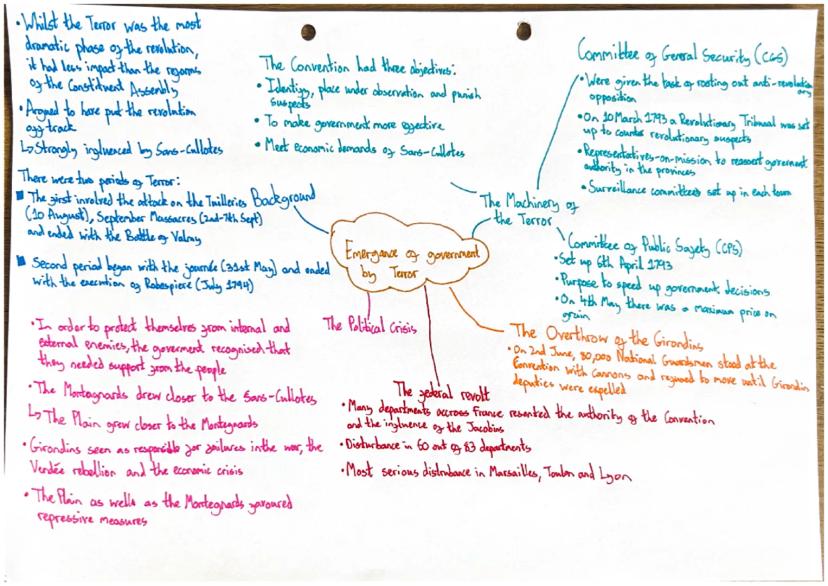 • Whilst the Terror was the most
dramatic phase of the revolution,
it had less impact than the reforms
of the Constituent Assembly
• Argued to have put the revolution
off track
↳ Strongly influenced by Sans-Cullotes
There were two periods of Terror:
■ The first involved the attack on the Tuilleries
(10 August), September Massacres (2nd-7th Sept)
and ended with the Battle of Valmy
■ Second period began with the journée (31st May) and ended
with the execution of Robespiere (July 1794)
Background
The Convention had three objectives:
• Identify, place under observation and punish
suspects
• To make government more effective
• Meet economic demands of Sans-Cullotes
The Machinery of
the Terror
Committee of General Security (CGS)
• Were given the task of rooting out anti-revolutionary
opposition
• On 10 March 1793 a Revolutionary Tribunal was set
up to counter revolutionary suspects
• Representatives-on-mission to reassert government
authority in the provinces
• Surveillance committees set up in each town
Committee of Public Safety (CPS)
• Set up 6th April 1793
• Purpose to speed up government decisions
• On 4th May there was a maximum price on
grain
Emergance of government
by Terror
The Political Crisis
• In order to protect themselves from internal and
external enemies, the goverment recognised that
they needed support from the people
• The Montegnards drew closer to the Sans-Cullotes
↳ The Plain grew closer to the Montegnards
• Girondins seen as responsible for failures in the war, the
Vendée rebellion and the economic crisis
• The Plain as wells as the Montegnards favoured
repressive measures
The federal revolt
• Many departments accross France resented the authority of the Convention
and the influence of the Jacobins
• Disturbance in 60 out of 83 departments
• Most serious distrubance in Marsailles, Toulon and Lyon
The Overthrow of the Girondins
• On 2nd June, 80,000 National Guardsmen stood at the
Convention with Cannons and refused to move until Girondin
deputies were expelled